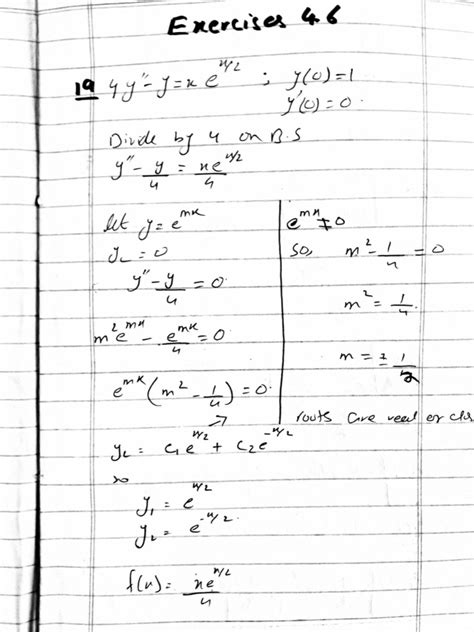 Exercises 4.6
19 4y″ - y = x e^{x/2} ; y(0)=1
y′(0)=0.
Divide by 4 on B.S
y″ - y/4 = xe^{x/2}/4
let y = e^{mx}
y_c = 0
y″ - y/4 = 0.
m²e^{mx} - e^{mx}/4 = 0.
e^{mx}(m² - 1/4) = 0.
e^{mx} ≠ 0
So, m² - 1/4 = 0
m² = 1/4.
m = ± 1/2
roots are real
y_c = c₁e^{x/2} + c₂e^{-x/2}
so
y₁ = e^{x/2}
y₂ = e^{-x/2}.
f(x) = xe^{x/2}/4